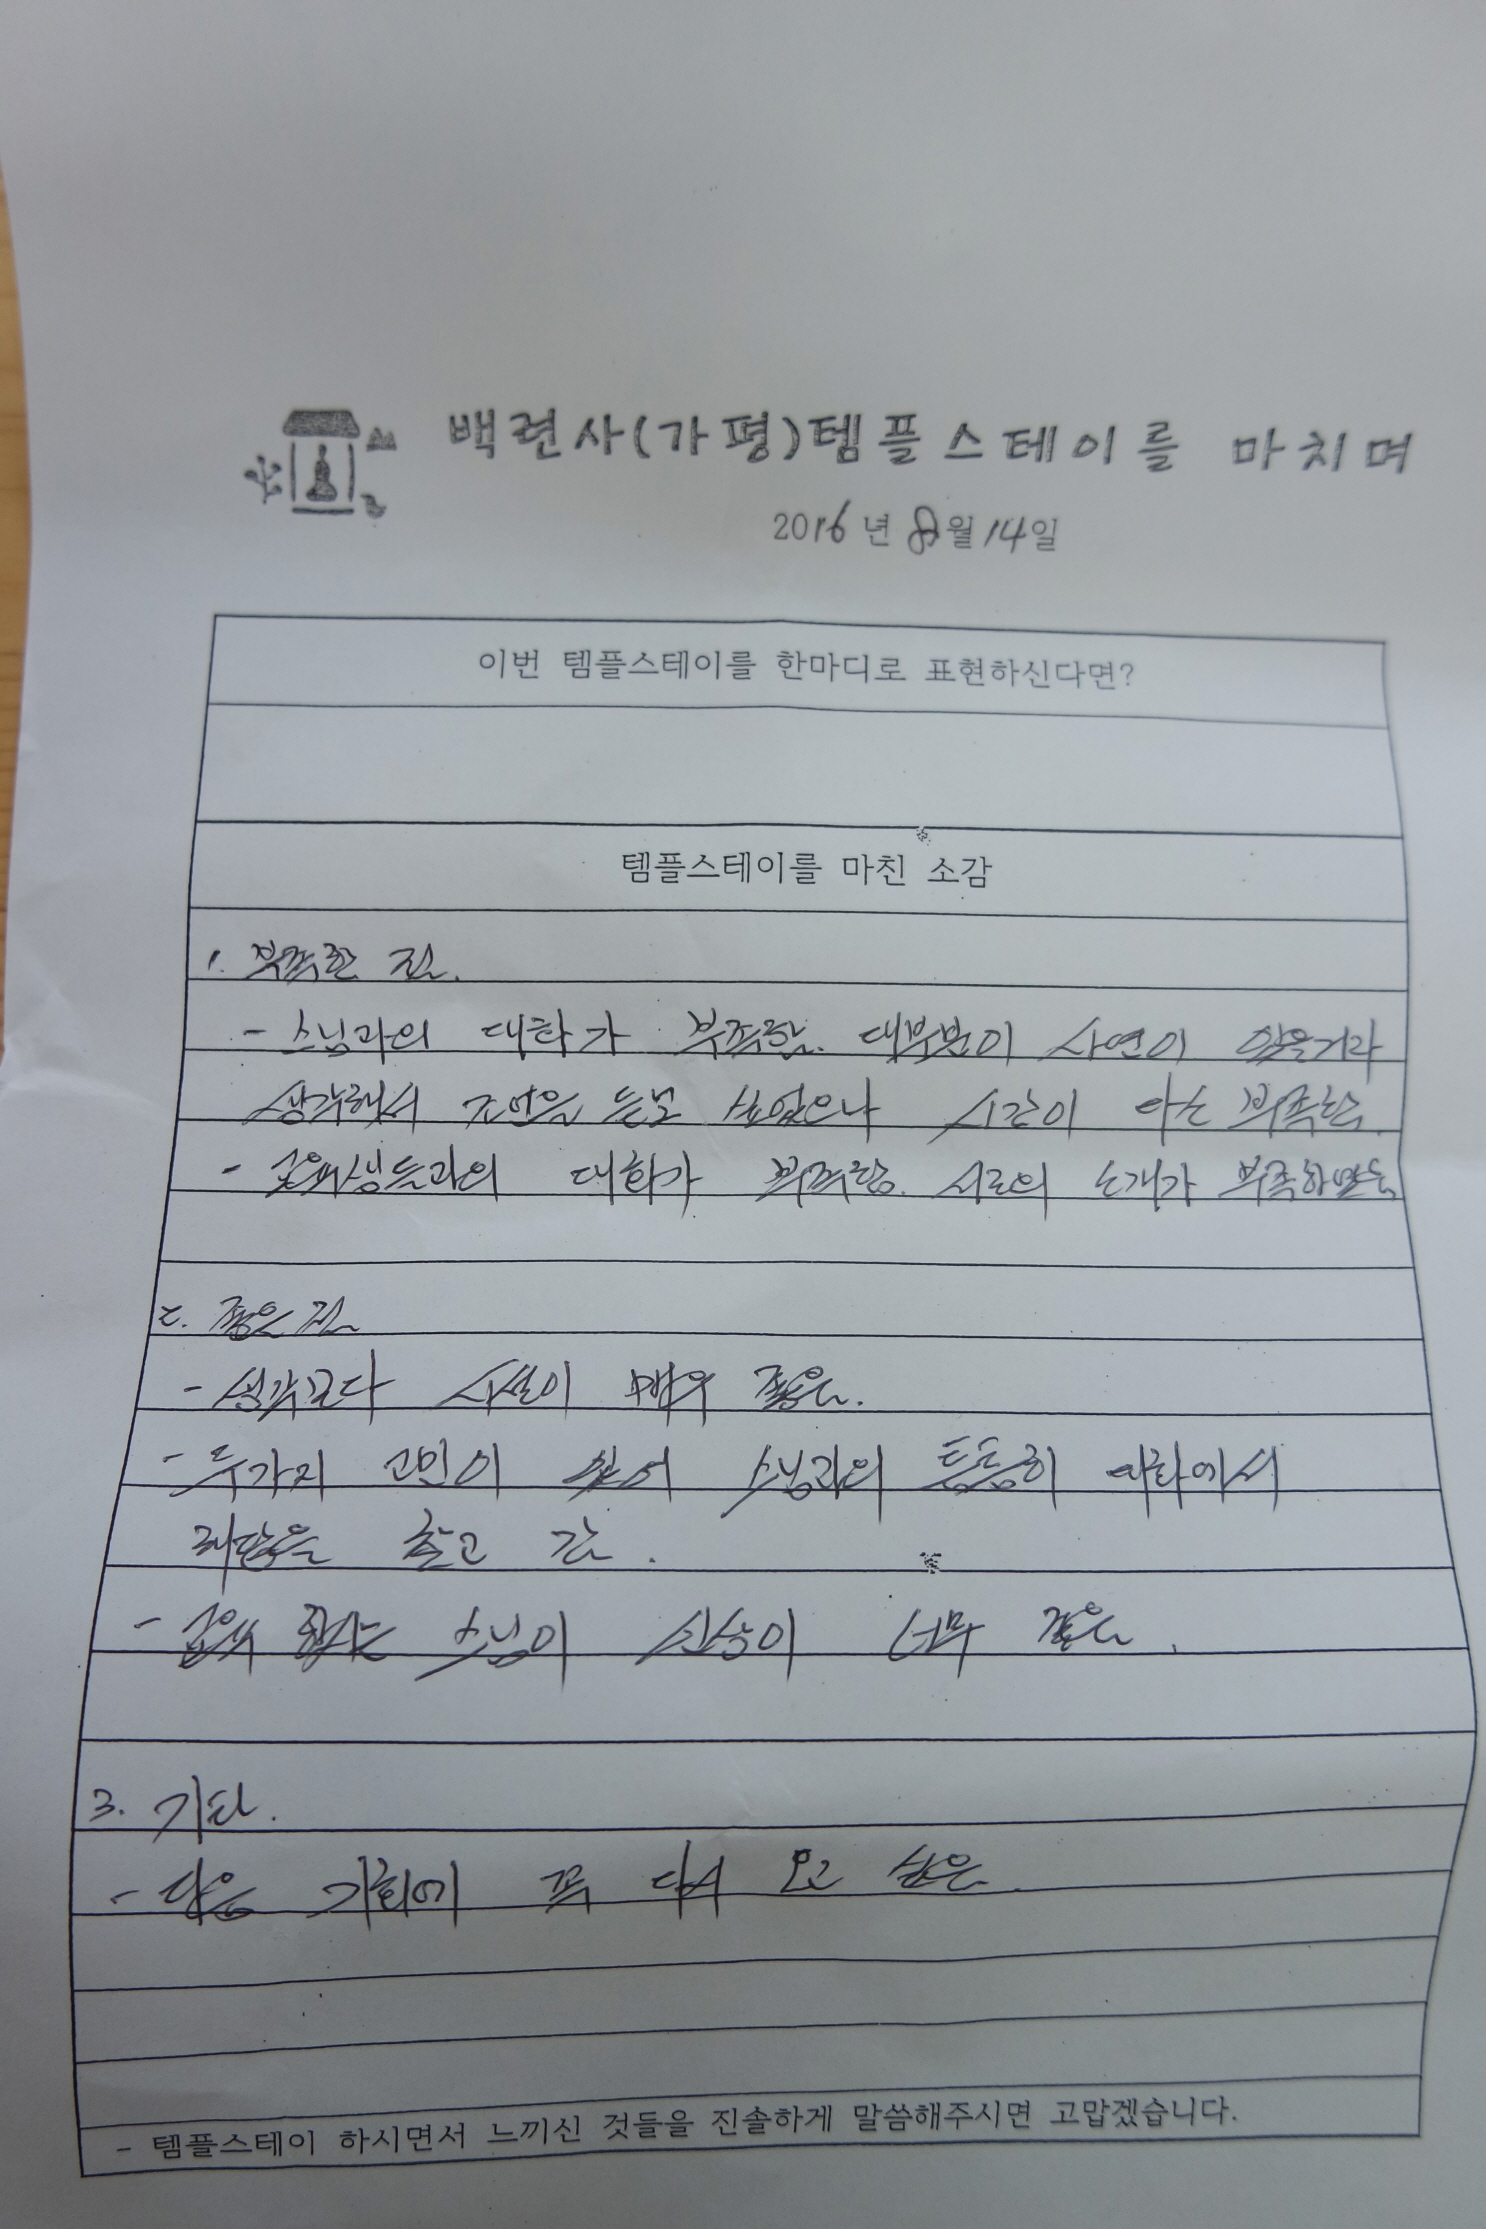 백련사(가평)템플스테이를 마치며
2016년 8월 14일
이번 템플스테이를 한마디로 표현하신다면?
템플스테이를 마친 소감
1. 부족한 점.
- 스님과의 대화가 부족함. 대부분이 사연이 있을거라
생각해서 조언을 듣고 싶었으나 시간이 다소 부족함.
- 교육생들과의 대화가 부족함. 서로의 소개가 부족하였음
2. 좋은 점
- 생각보다 시설이 매우 좋음.
- 두가지 고민이 있어 스님과의 틈틈히 대화에서
해답을 찾고 감.
- 교육 스님이 인상이 너무 좋음.
3. 기타.
- 다음 기회에 꼭 다시 오고 싶음.
- 템플스테이 하시면서 느끼신 것들을 진솔하게 말씀해주시면 고맙겠습니다.